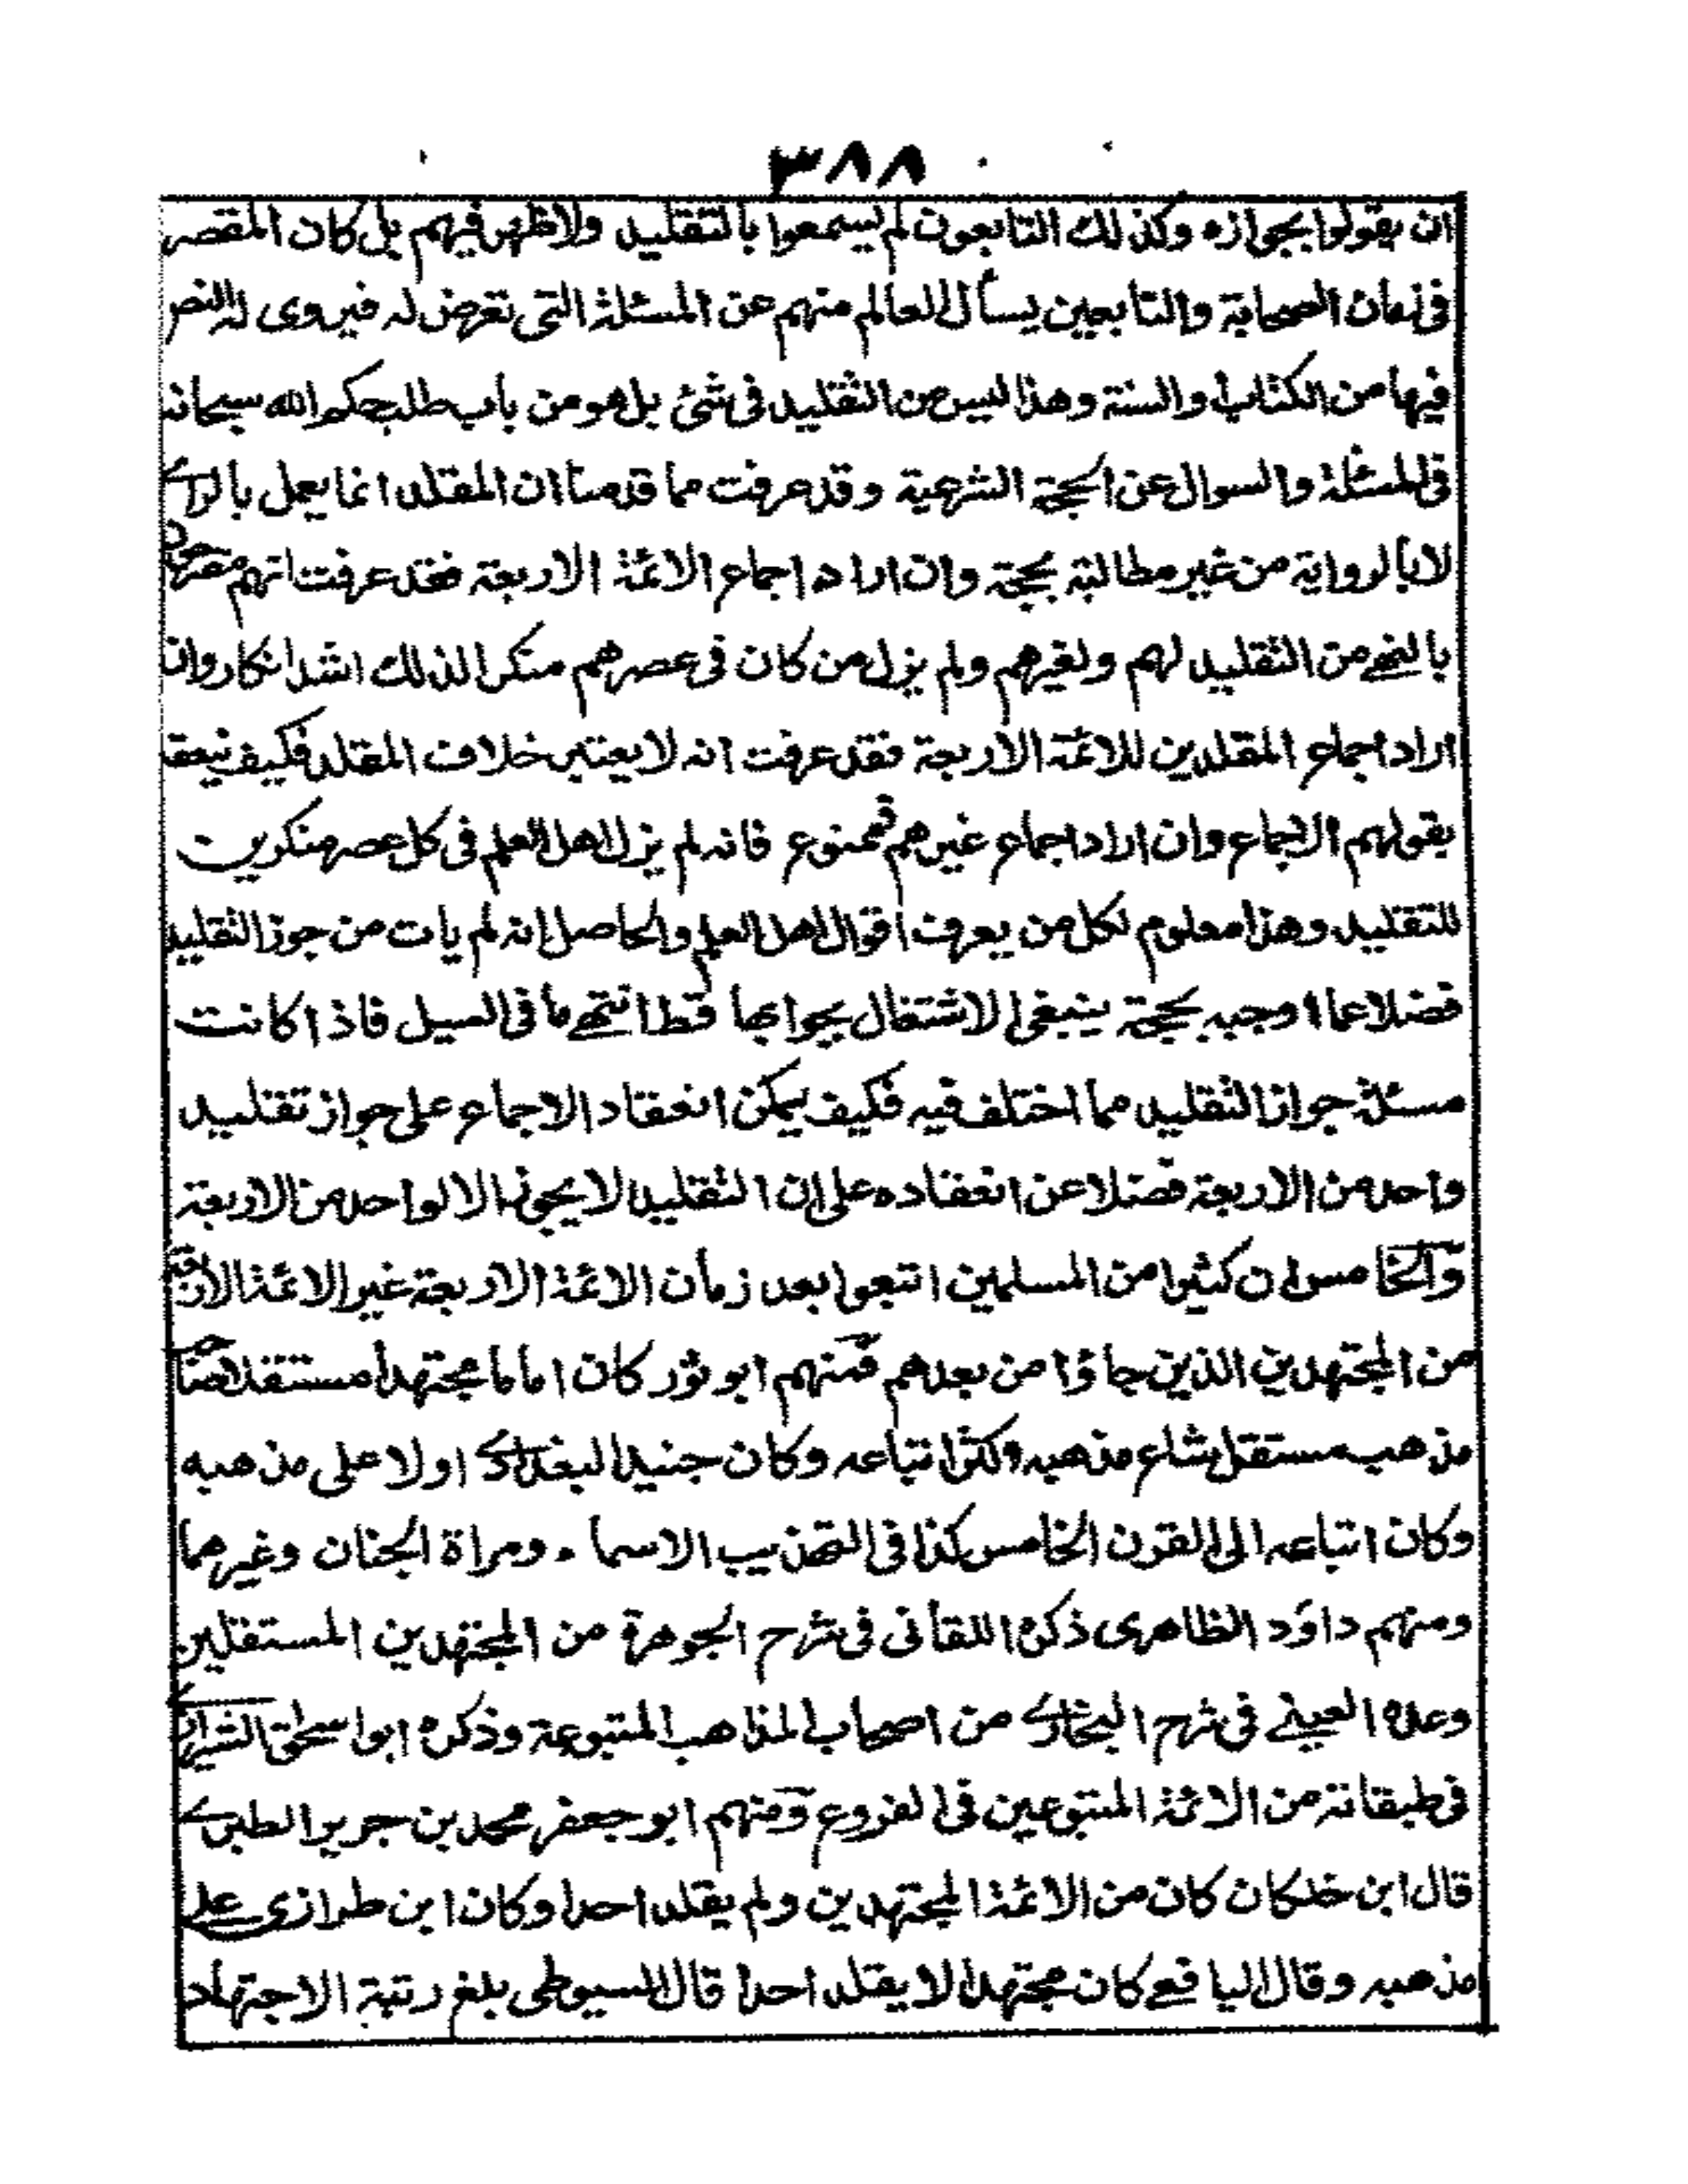 ٣٨٨
ان يقولوا بجوازه وكذلك التابعون لم يسمعوا بالتقليد ولاظهر فيهم بل كان المقصر
فى زمان الصحابة والتابعين يسأل العالم منهم عن المسئلة التى تعرض له فيروى له النص
فيها من الكتاب والسنة وهذا ليس من التقليد فى شئ بل هو من باب طلب حكم الله سبحانه
فى المسئلة والسوال عن الحجة الشرعية وقد عرفت مما قدمنا ان المقلد انما يعمل بالراى
لا بالرواية من غير مطالبة بحجة وان اراد اجماع الائمة الاربعة فقد عرفت انهم مصرحون
بالنهى من التقليد لهم ولغيرهم ولم يزل من كان فى عصرهم منكرا لذلك اشد انكار وان
اراد اجماع المقلدين للائمة الاربعة فقد عرفت انه لا يعتبر خلاف المقلد فكيف ينعقد
بقولهم الاجماع وان اراد اجماع غيرهم فممنوع فانه لم يزل اهل العلم فى كل عصر منكرين
للتقليد وهذا معلوم لكل من يعرف اقوال اهل العلم والحاصل انه لم يات من جوز التقليد
فضلا عما اوجبه بحجة ينبغى الاشتغال بجوابها قط انتهى ما فى السيل فاذا كانت
مسئلة جواز التقليد مما اختلف فيه فكيف يمكن انعقاد الاجماع على جواز تقليد
واحد من الاربعة فضلا عن انعقاده على ان التقليد لا يجوز الا لواحد من الاربعة
والخامس ان كثيرا من المسلمين اتبعوا بعد زمان الائمة الاربعة غير الائمة الاربعة
من المجتهدين الذين جاؤا من بعدهم فمنهم ابو ثور كان اماما مجتهدا مستقلا صاحب
مذهب مستقل شاع مذهبه وكثر اتباعه وكان جنيد البغدادى اولا على مذهبه
وكان اتباعه الى القرن الخامس كذا فى التهذيب الاسماء ومراة الجنان وغيرهما
ومنهم داؤد الظاهرى ذكره اللقانى فى شرح الجوهرة من المجتهدين المستقلين
وعده العينى فى شرح البخارى من اصحاب المذاهب المتبوعة وذكره ابو اسحاق الشيرازى
فى طبقاته من الائمة المتبوعين فى الفروع ومنهم ابو جعفر محمد بن جرير الطبرى
قال ابن خلكان كان من الائمة المجتهدين ولم يقلد احدا وكان ابن طرازى على
مذهبه وقال اليافعى كان مجتهدا لا يقلد احدا قال السيوطى بلغ رتبة الاجتهاد